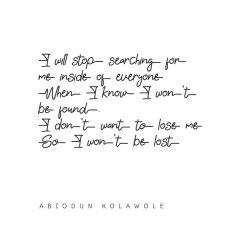 I will stop searching for
me inside of everyone
When I know I won't
be found.
I don't want to lose me
So I won't be lost
ABIODUN KOLAWOLE